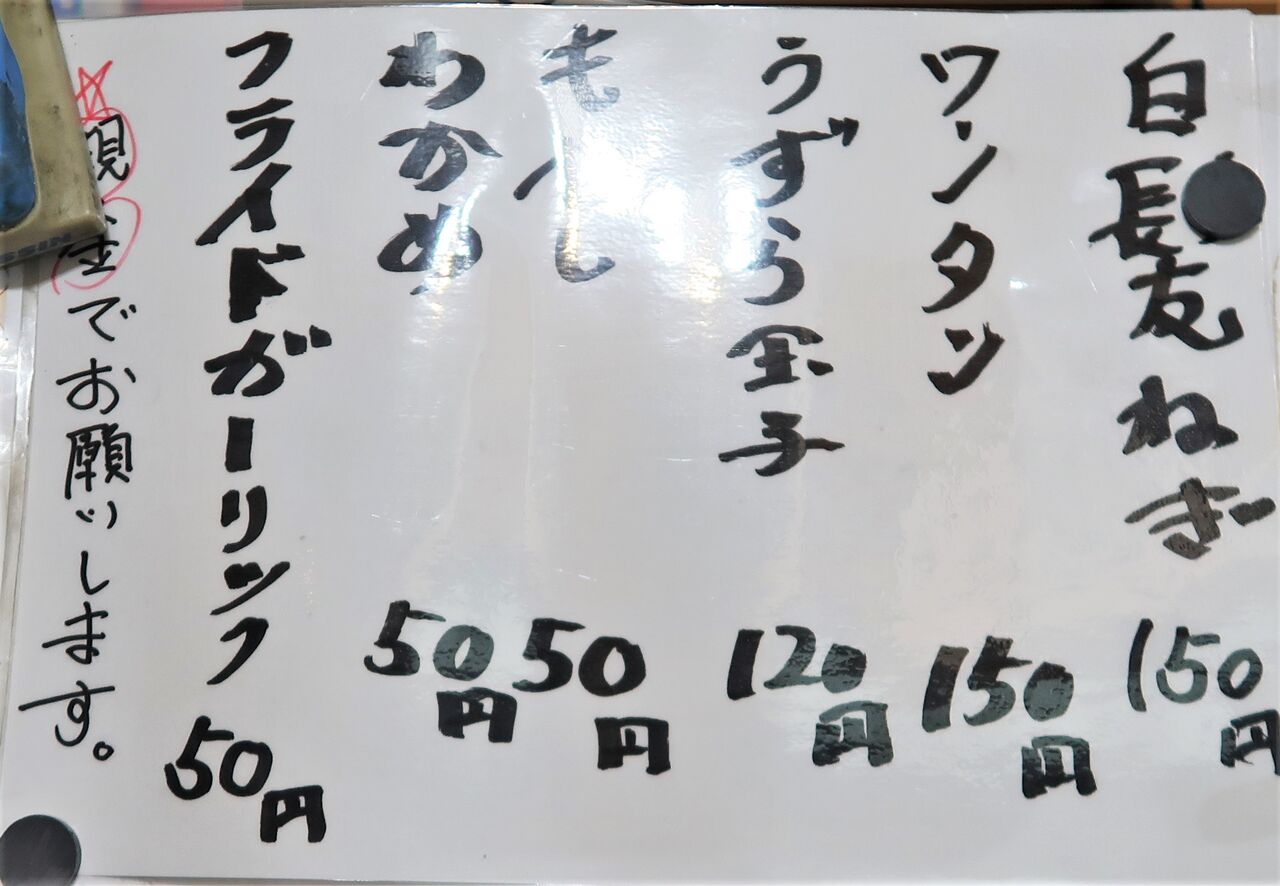 白髪ねぎ 150円
ワンタン 150円
うずら玉子 120円
もやし 50円
わかめ 50円
フライドガーリック 50円
☆現金でお願いします。